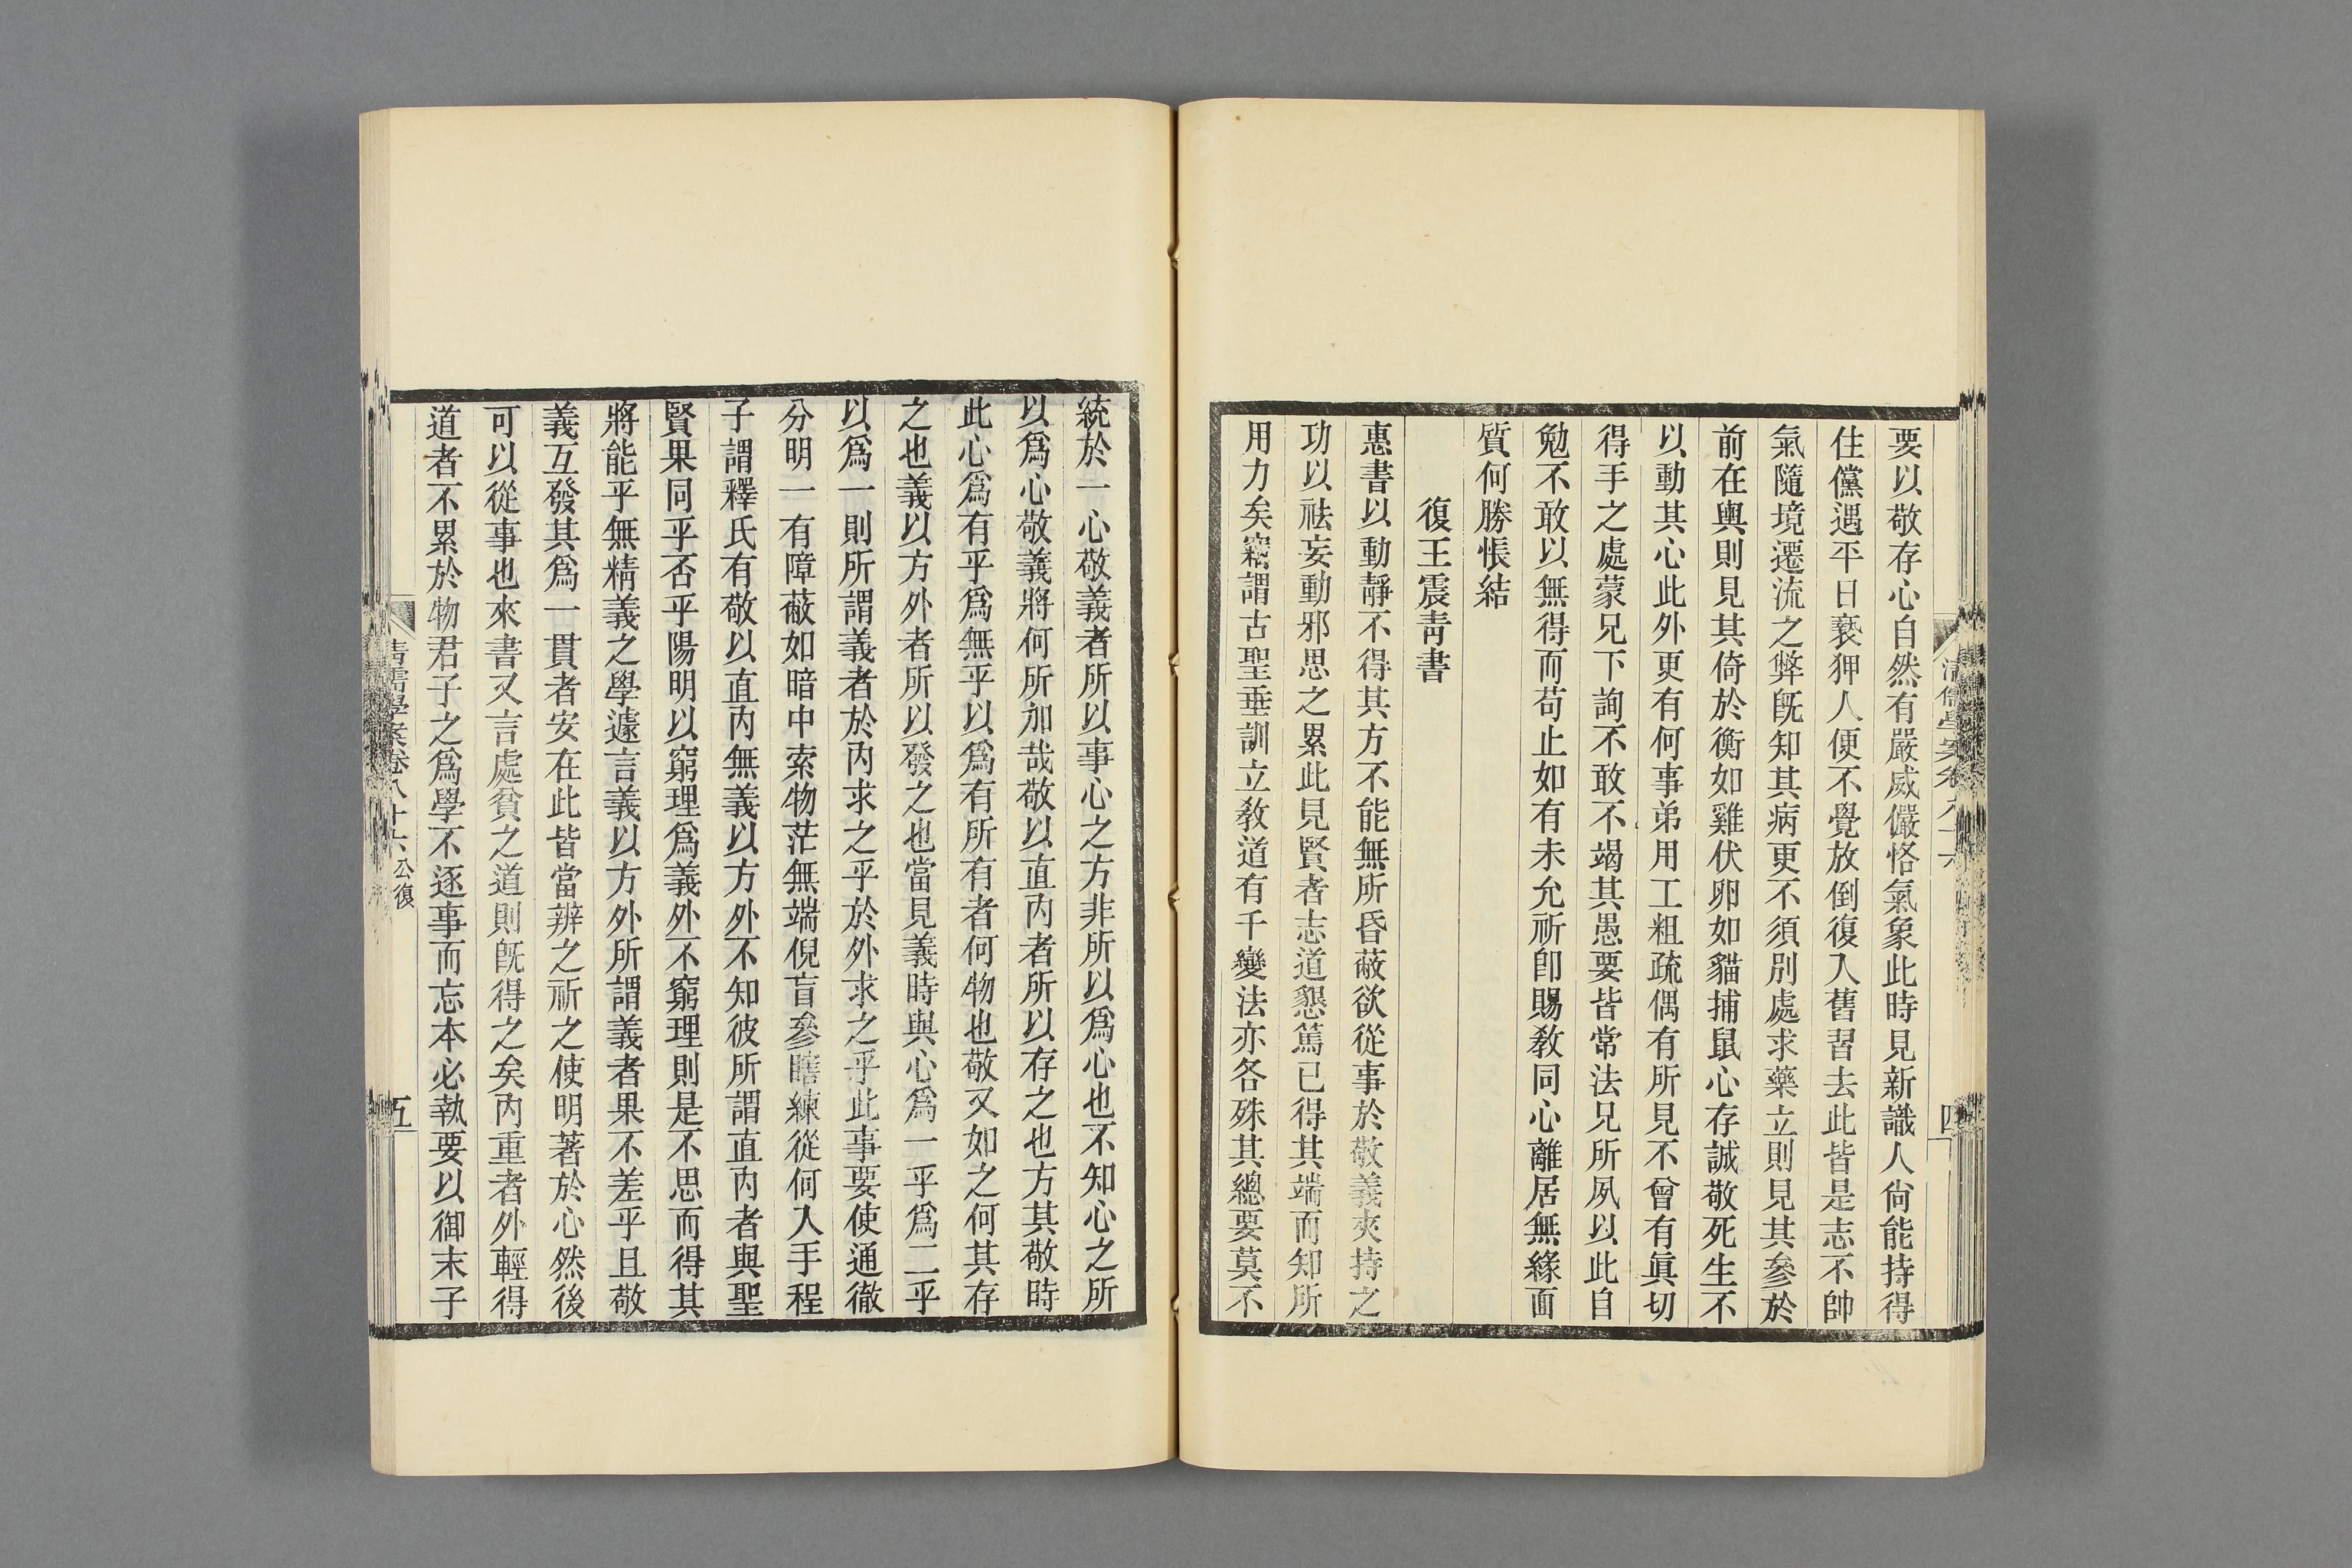 要以敬存心自然有嚴威儼恪氣象此時見新識人尙能持得
住儻遇平日褻狎人便不覺放倒復入舊習去此皆是志不帥
氣隨境遷流之弊旣知其病更不須別處求藥立則見其參於
前在輿則見其倚於衡如雞伏卵如貓捕鼠心存誠敬死生不
以動其心此外更有何事弟用工粗疏偶有所見不曾有眞切
得手之處蒙兄下詢不敢不竭其愚要皆常法兄所夙以此自
勉不敢以無得而苟止如有未允祈卽賜敎同心離居無緣面
質何勝悵結
復王震靑書
惠書以動靜不得其方不能無所昏蔽欲從事於敬義夾持之
功以祛妄動邪思之累此見賢者志道懇篤已得其端而知所
用力矣竊謂古聖垂訓立敎道有千變法亦各殊其總要莫不
統於一心敬義者所以事心之方非所以爲心也不知心之所
以爲心敬義將何所加哉敬以直內者所以存之也方其敬時
此心爲有乎爲無乎以爲有所有者何物也敬又如之何其存
之也義以方外者所以發之也當見義時與心爲一乎爲二乎
以爲一則所謂義者於內求之乎於外求之乎此事要使通徹
分明一有障蔽如暗中索物茫無端倪盲參瞎練從何入手程
子謂釋氏有敬以直內無義以方外不知彼所謂直內者與聖
賢果同乎否乎陽明以窮理爲義外不窮理則是不思而得其
將能乎無精義之學遽言義以方外所謂義者果不差乎且敬
義互發其爲一貫者安在此皆當辨之祈之使明著於心然後
可以從事也來書又言處貧之道則旣得之矣內重者外輕得
道者不累於物君子之爲學不逐事而忘本必執要以御末子
清儒學案卷八十六 公復
五
四